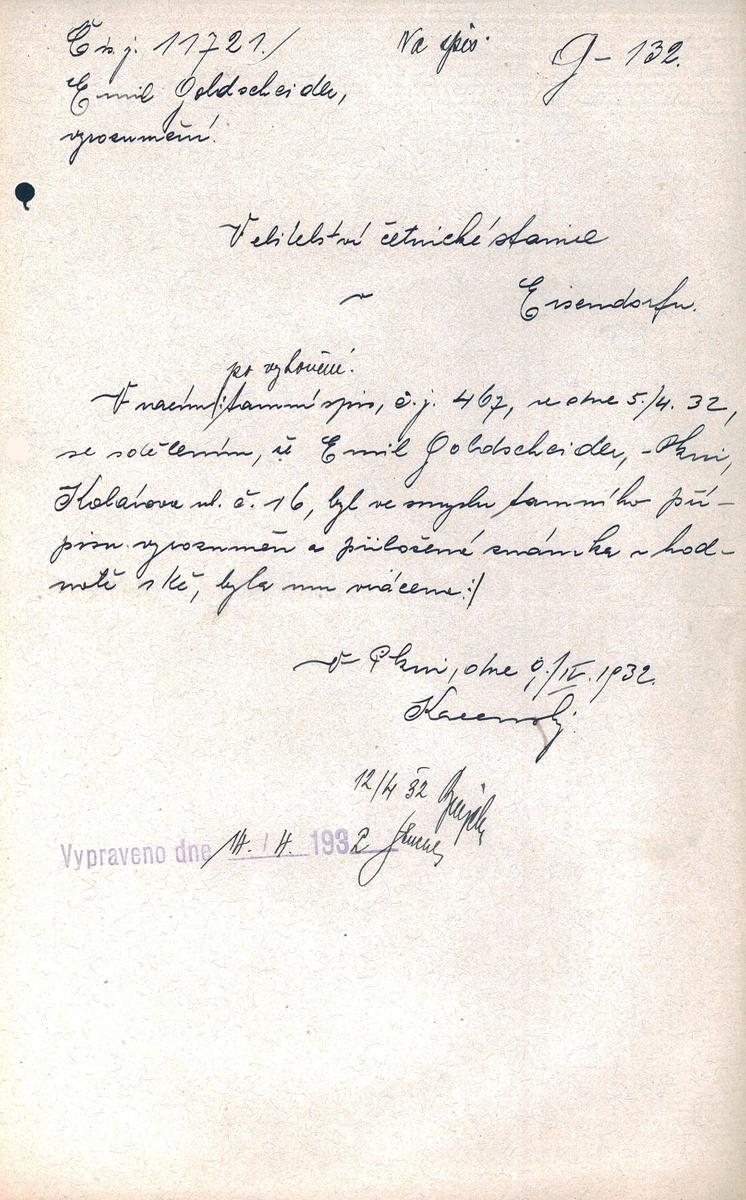 Čís. j. 11721./
Na spis.
G – 132.
Emil Goldscheider,
vyrozumění.
Velitelství četnické stanice
v Eisendorfu.
po vyhovění.
V tamní spis, č.j. 467, ze dne 5./4. 32,
se sdělením, že Emil Goldscheider, Plzni,
Kolárova ul. č. 16, byl ve smyslu tamního pří-
pisu vyrozuměn a přiložená známka v hod-
notě 1 Kč, byla mu vrácena :/
V Plzni, dne 9./IV. 1932.
12/4 32
Vypraveno dne 14. / 4. 1932